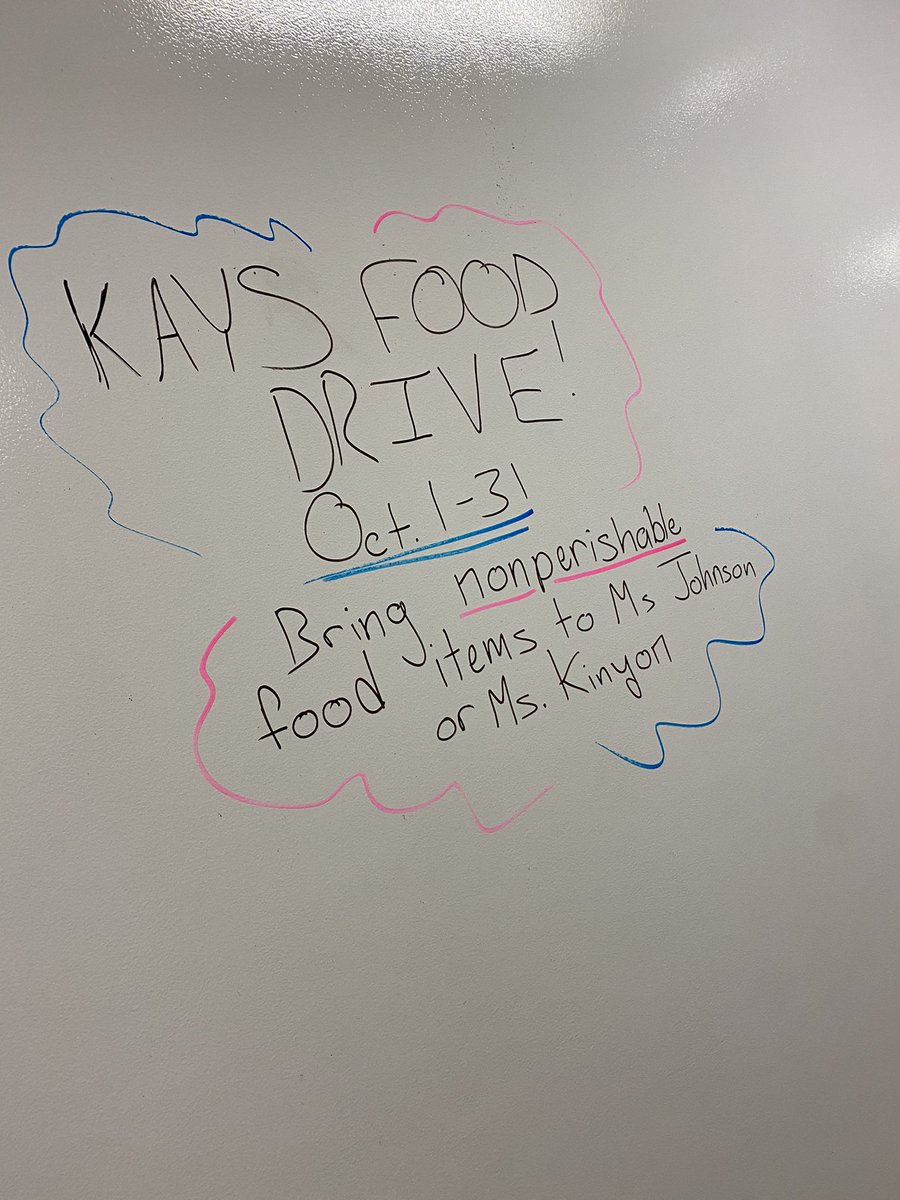 KAYS FOOD
DRIVE!
Oct. 1-31
Bring nonperishable
food items to Ms Johnson
or Ms. Kinyon